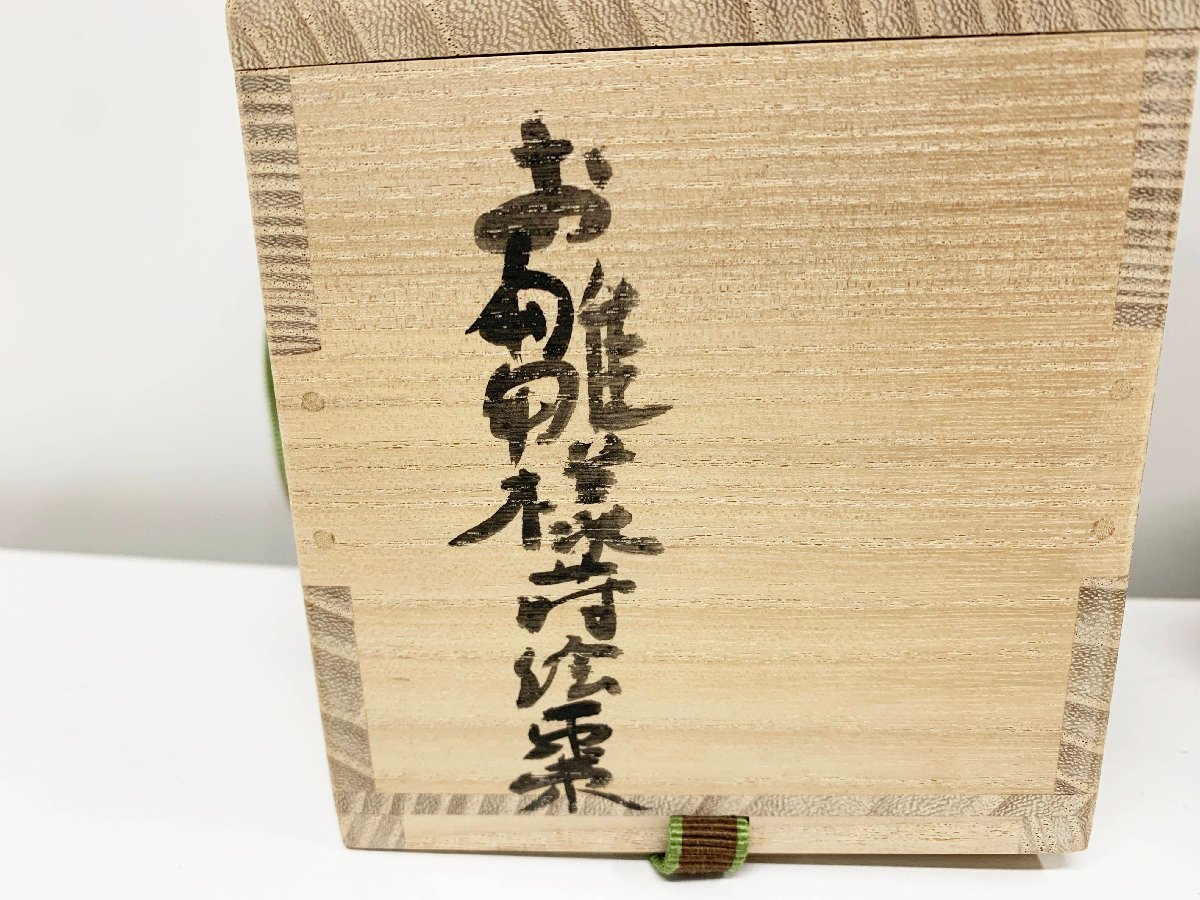 お雛様蒔絵棗